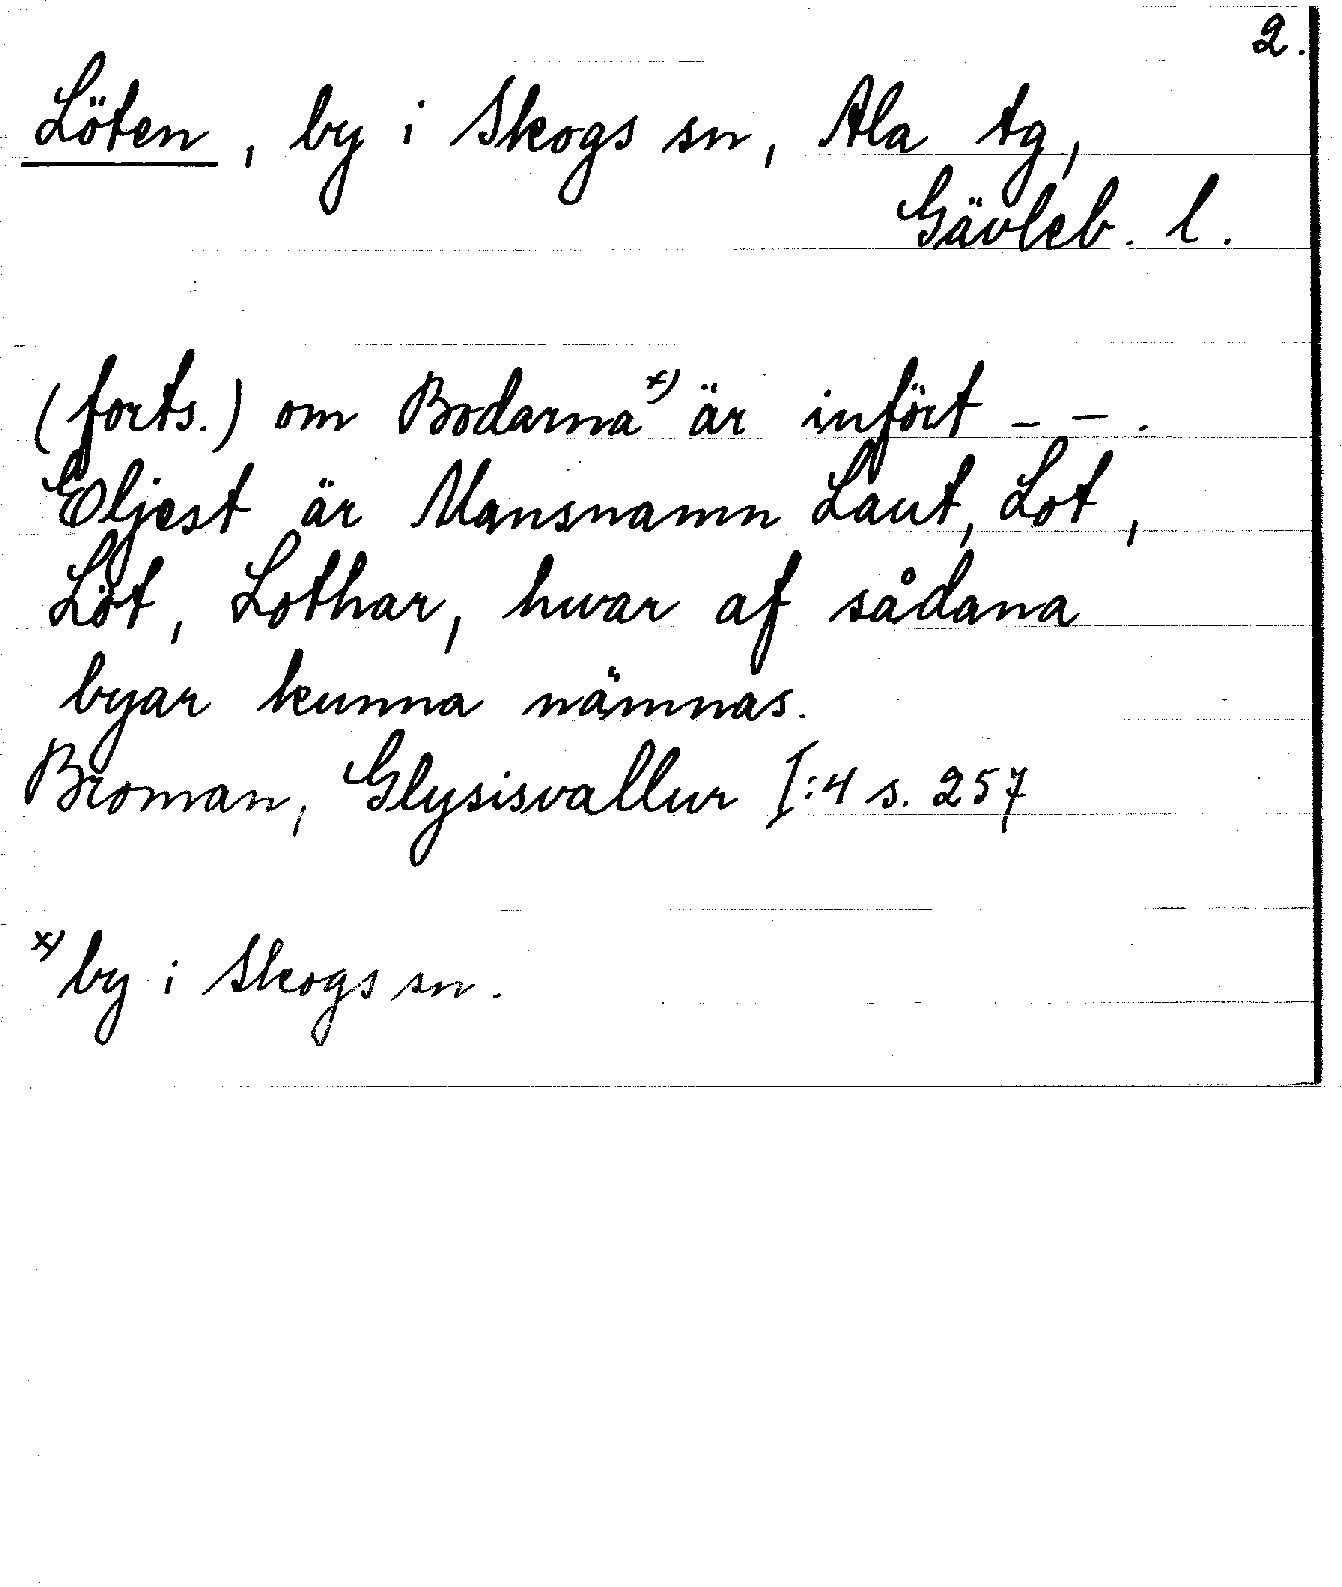 2.
Löten, by i Skogs sn, Ala tg,
Gävleb. l.
(forts.) om Bodarna x) är infört - - .
Eljest är Mansnamn Laut, Lot,
Löt, Lothar, hwar af sådana
byar kunna nämnas.
Broman, Glysisvallur I:4 s. 257
x) by i Skogs sn.